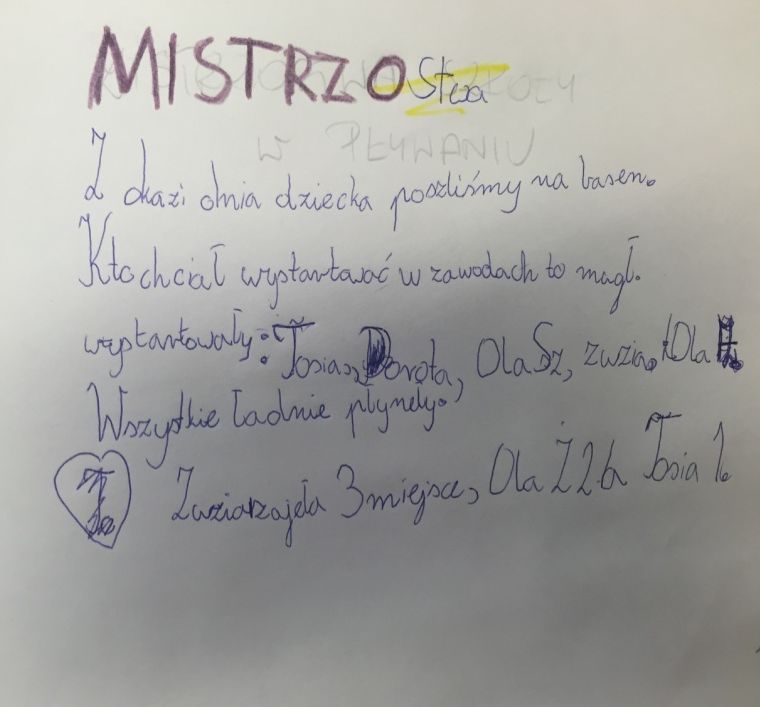 MISTRZO
W PŁYWANIU
Z okazi dnia dziecka poszliśmy na basen.
Kto chciał wystartować w zawodach to magł.
wystartowały: Tosia, Dorota, Ola Sz, zuzia, Ola
Wszystkie ładnie płynęły.
Zuzia zajeła 3 miejsce, Ola Ż 2 Tosia 1.